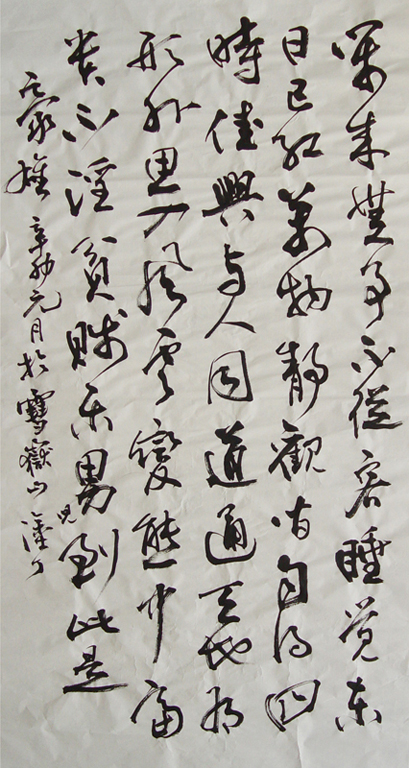 閑来無事不從容睡觉東
日已红萬物静觀皆自得四
時佳興与人同道通天地有
形外思入風雲變態中富
贵不淫貧賤乐男児到此是
豪雄 辛卯元月於雪嶽山